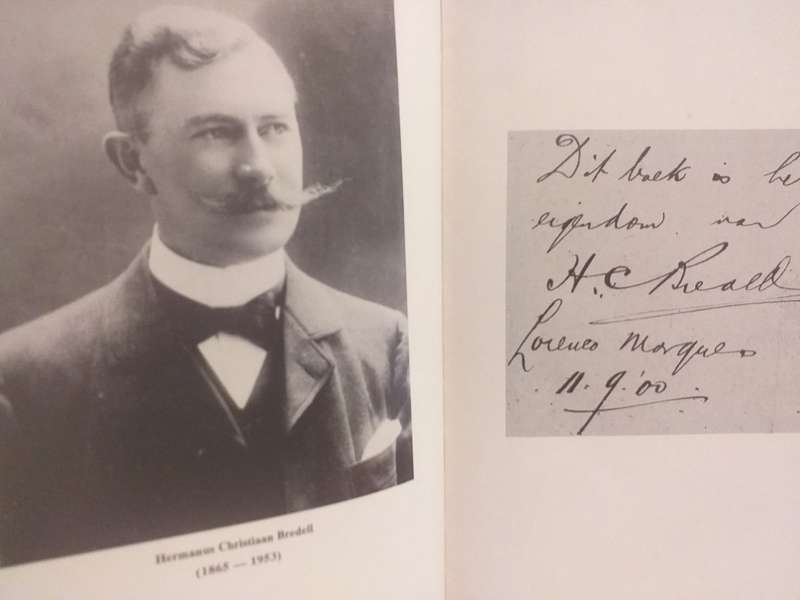 Hermanus Christiaan Bredell
(1865 — 1953)
Dit boek is he
eigendom van
H. C Bredell
Lorenco Marques
11. 9.'00.